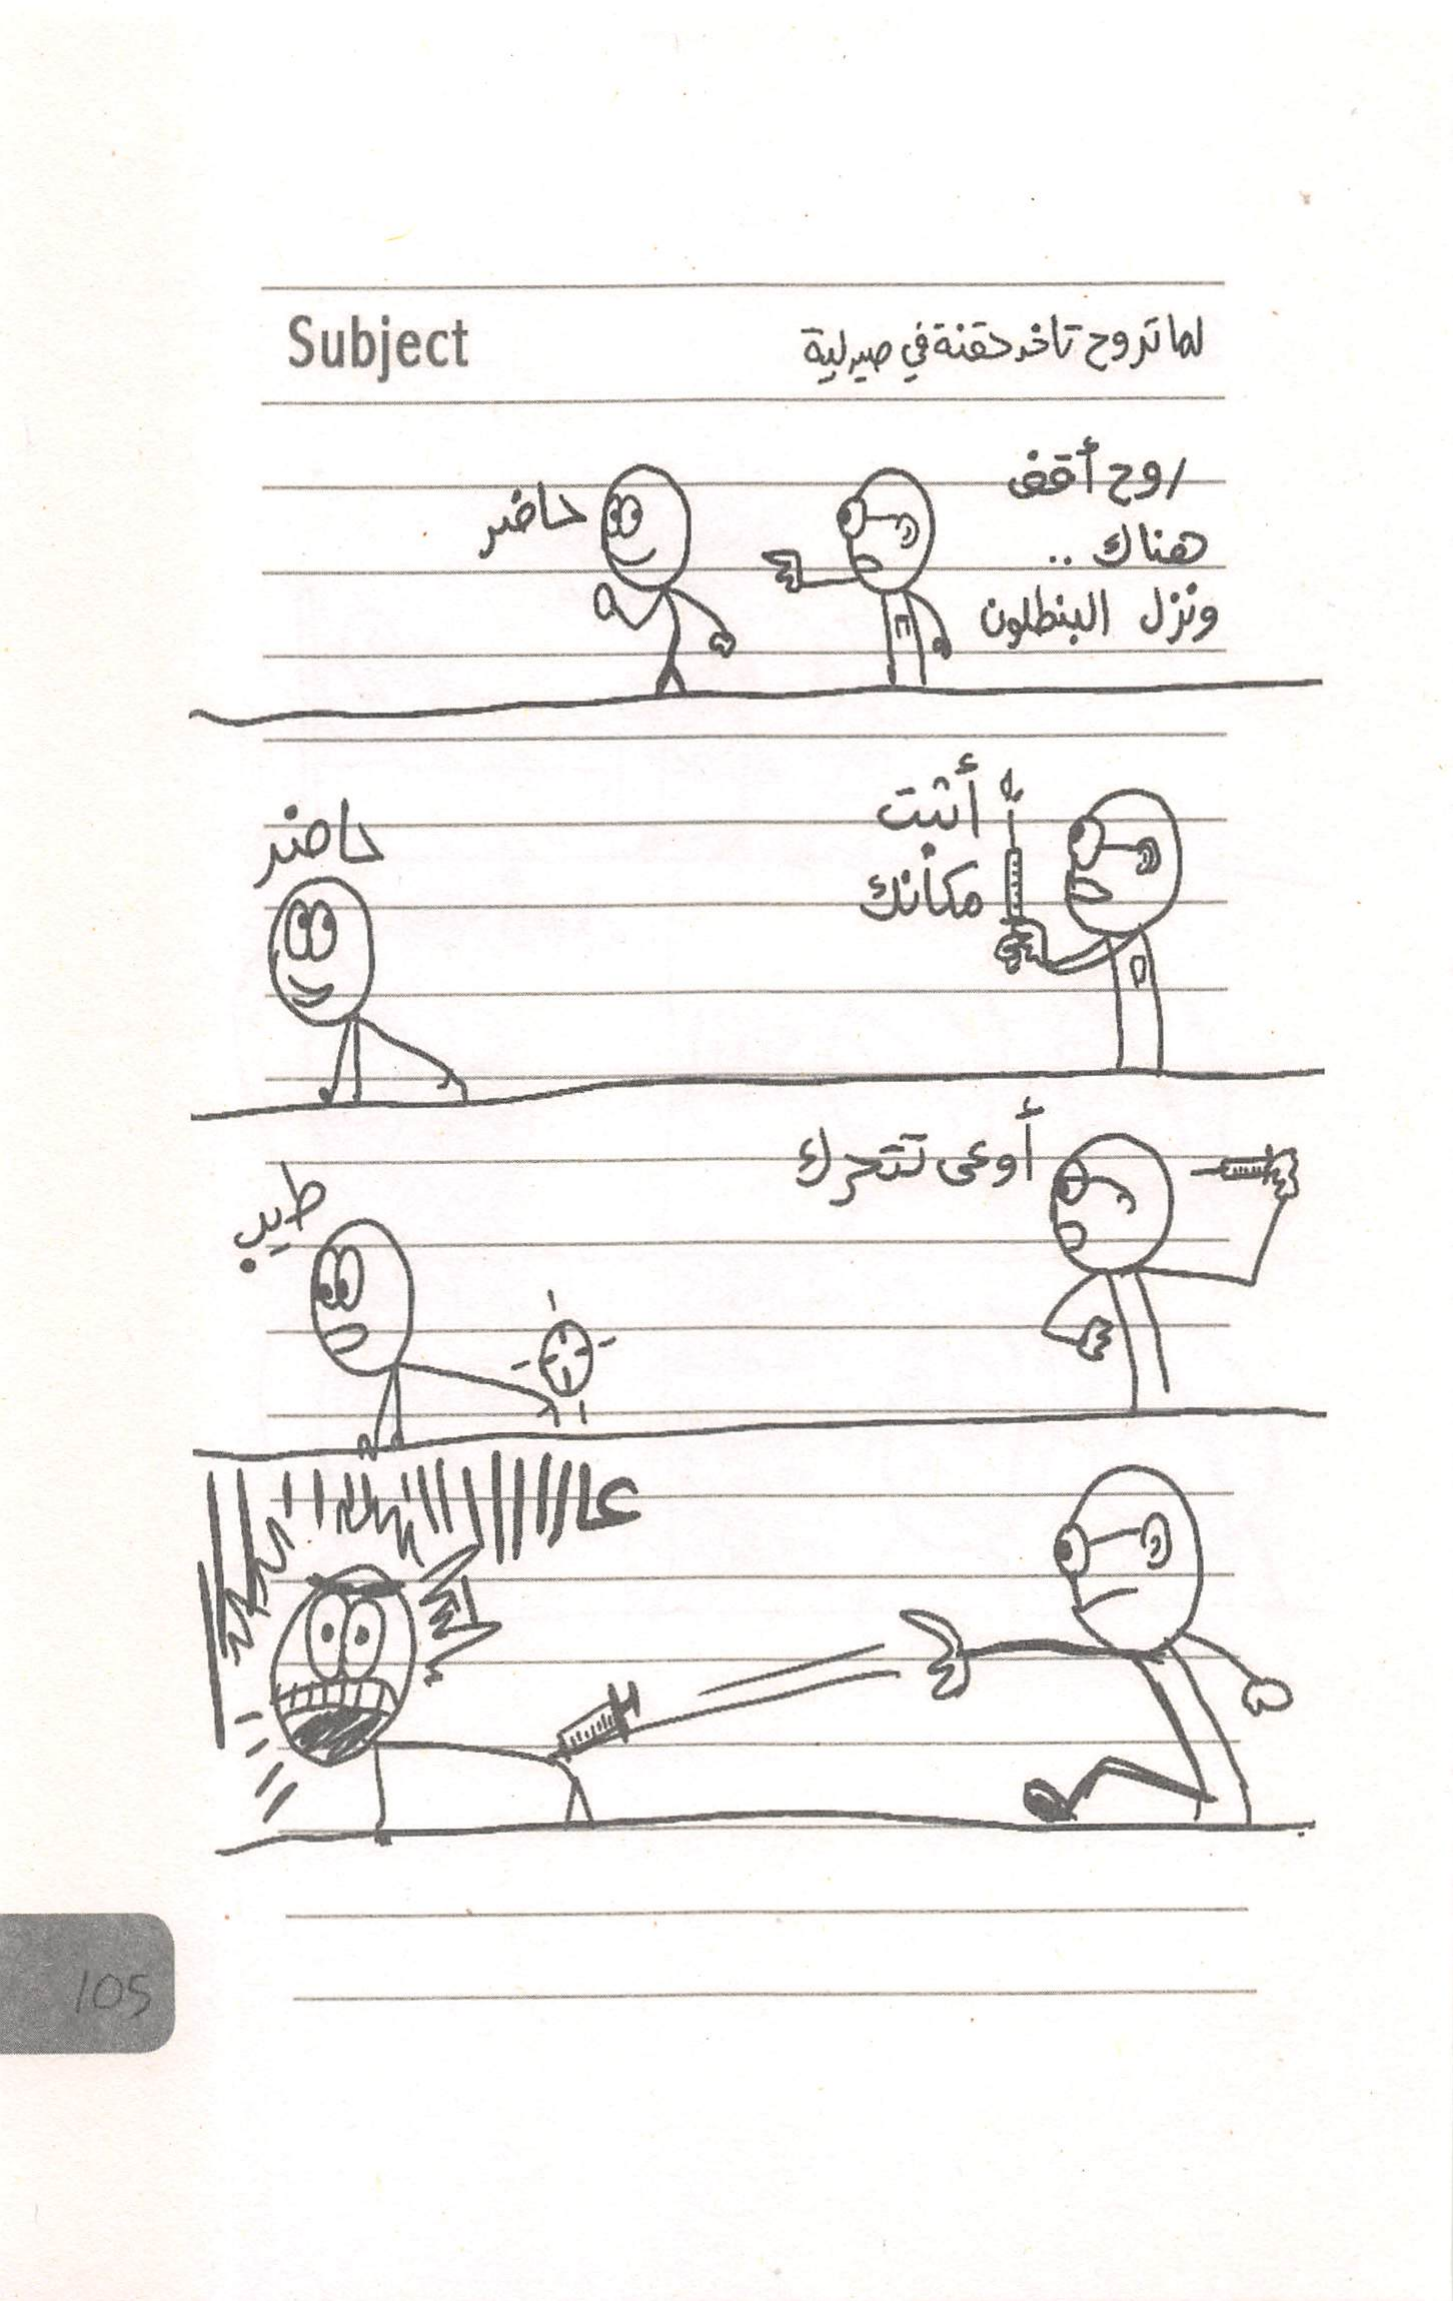 Subject
لما تروح تاخد حقنة في صيدلية
روح أقف
هناك ..
ونزل البنطلون
حاضر
أثبت
مكانك
حاضر
أوعى تتحرك
طيب
عااااااااااا
105